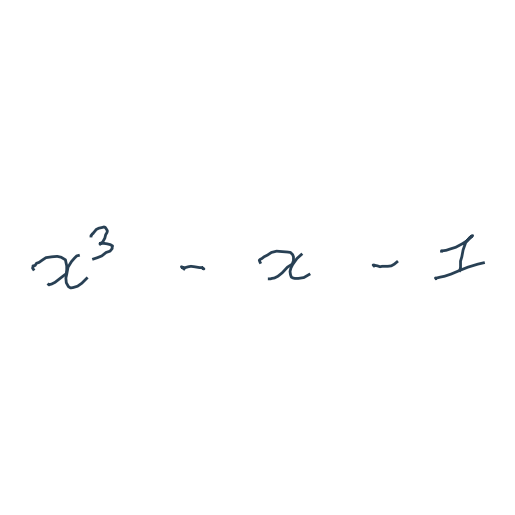 x³ - x - 1